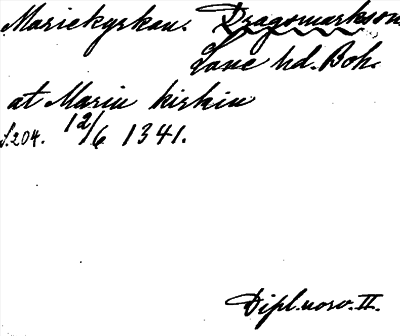 Mariekyrkan. Dragsmarkssn.
Lane hd. Boh.
at Mariu kirkiu
s. 204. 12/6 1341.
Dipl. norv. II.